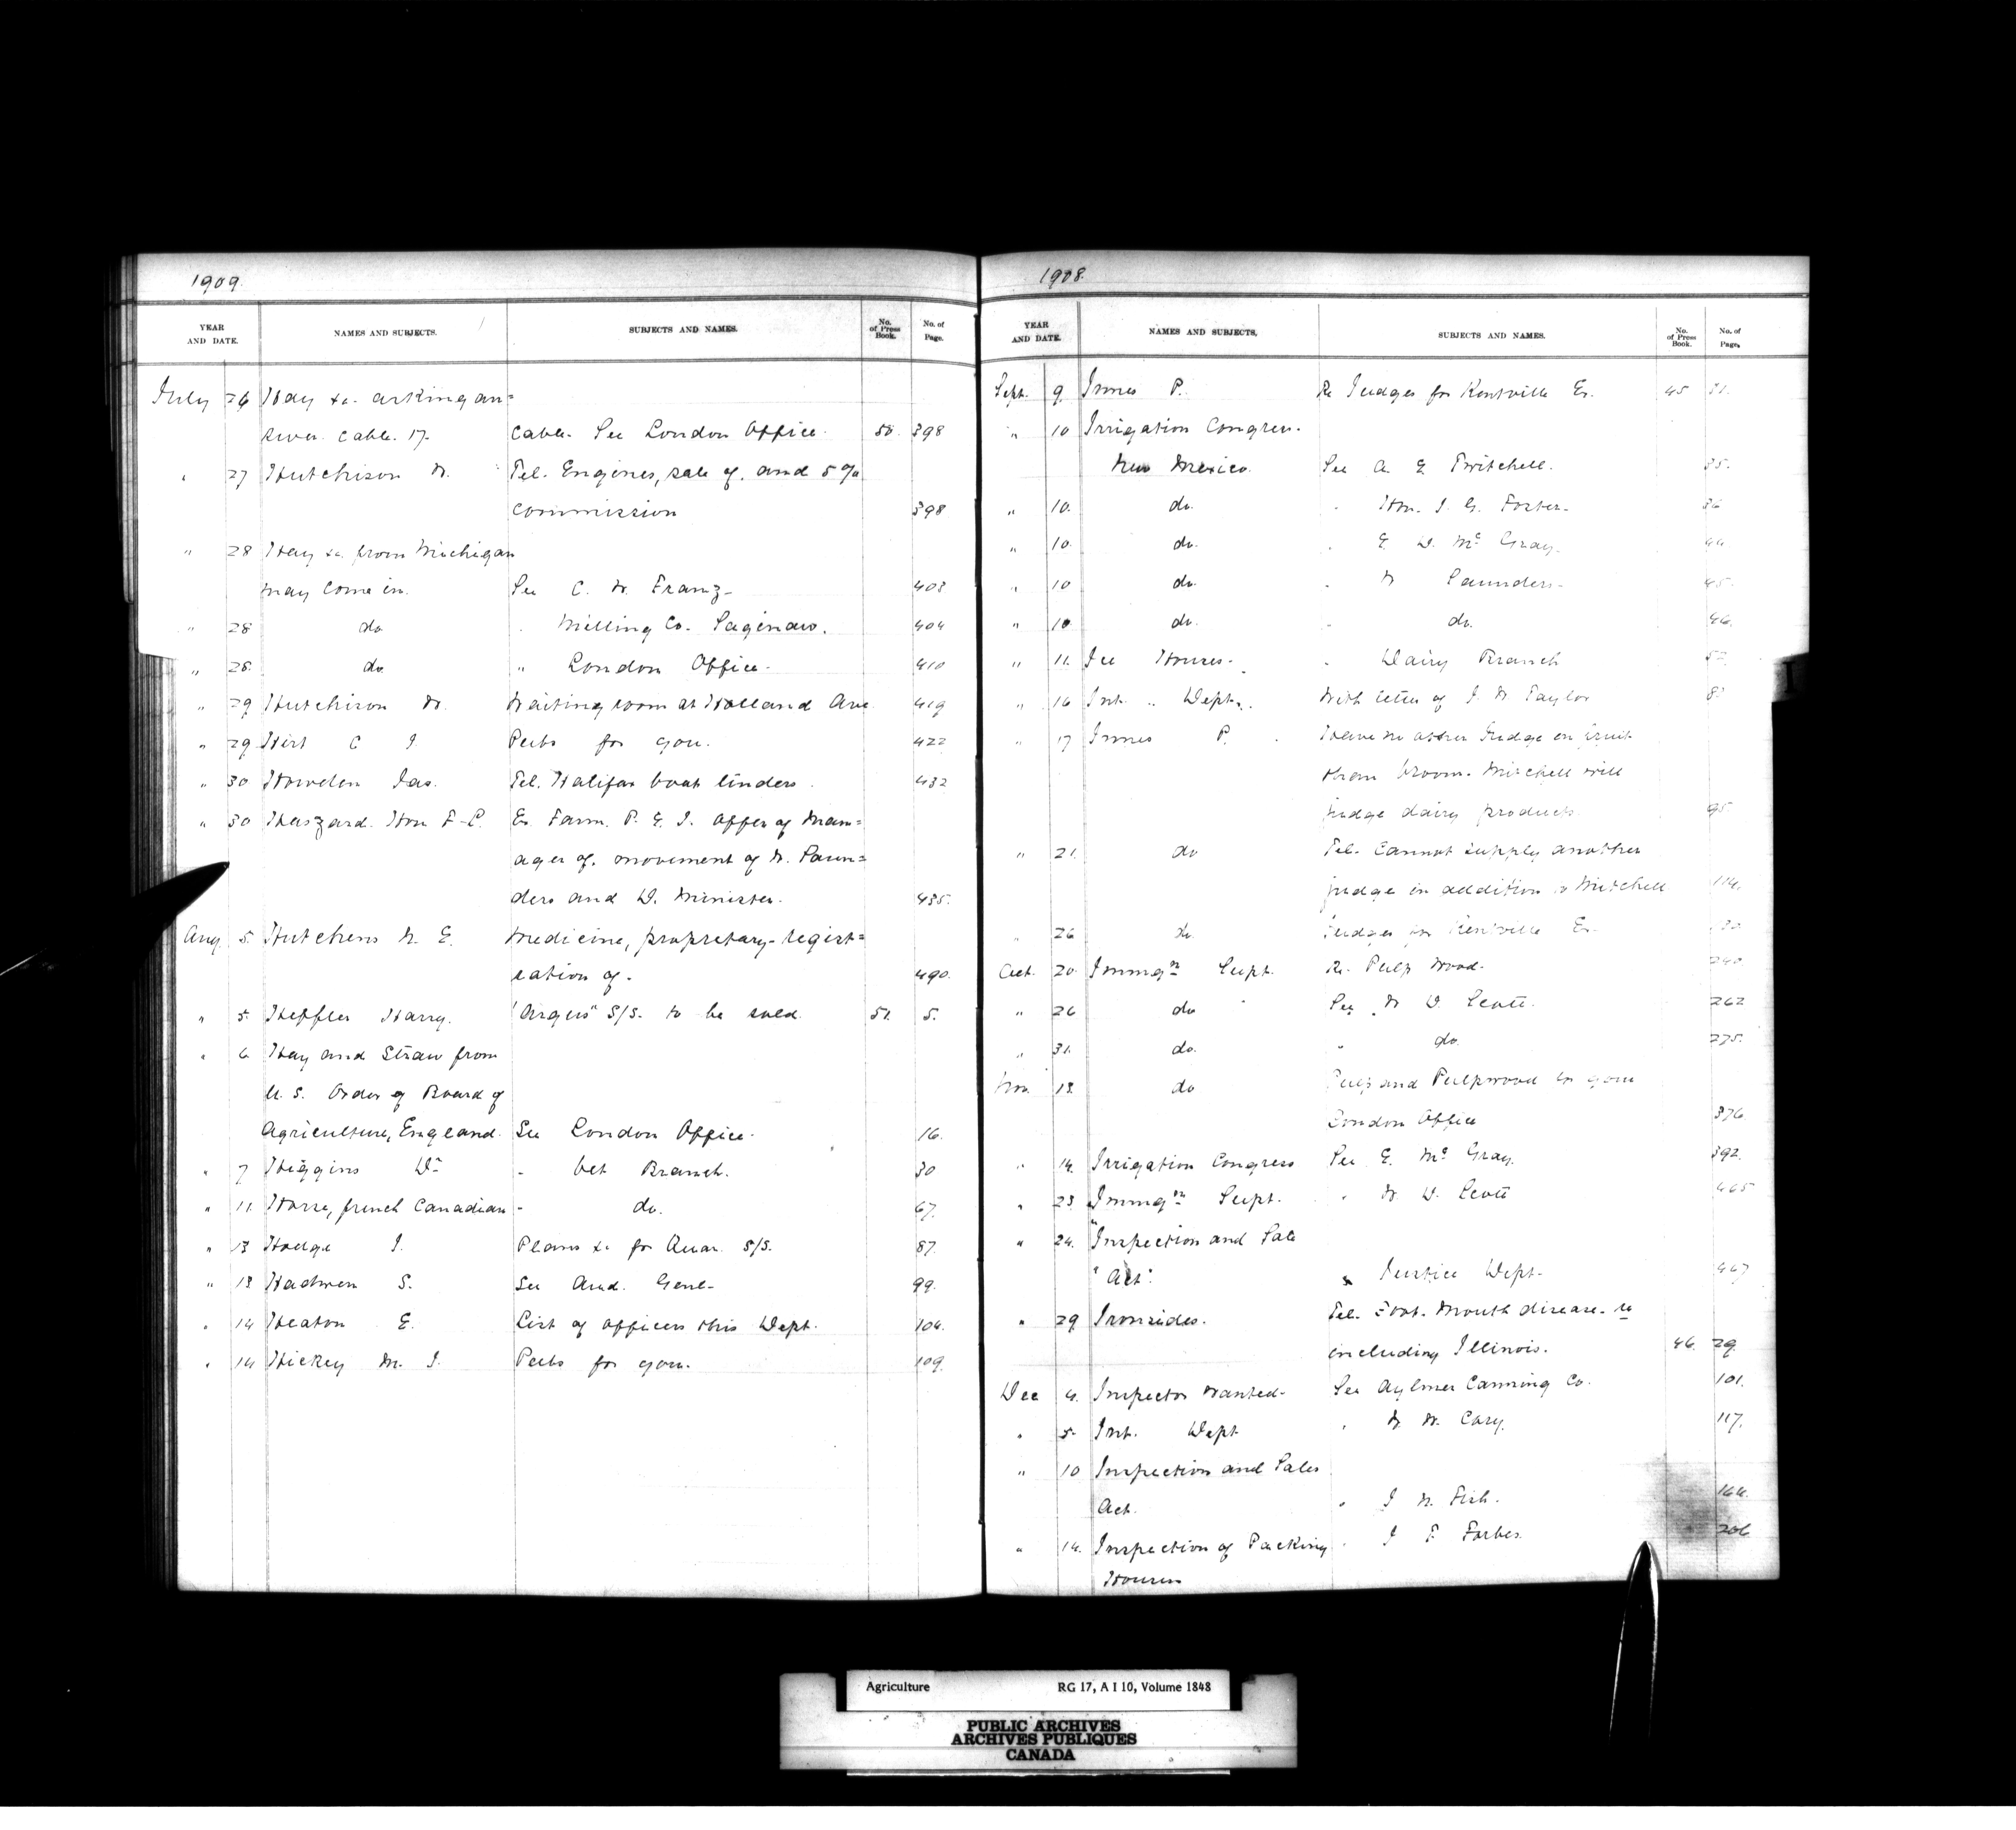 1909.
YEAR AND DATE. NAMES AND SUBJECTS. SUBJECTS AND NAMES. No. of Press Book. No. of Page.
July 26 Hay &c. asking an=
swer cable. 17. Cable. See London Office. 50. 398
" 27 Hutchison W. Tel. Engines, sale of. and 5%
commission 398
" 28 Hay &c. from Michigan
may come in. See C. W. Franz- 403
" 28 do Milling Co. Saginaw. 404
" 28. do " London Office. 410
" 29 Hutchison W. Waiting room at Holland Ave. 419
" 29 Hirt C J. Pubs for you. 422
" 30 Howden Jas. Tel. Halifax boat tenders. 432
" 30 Haszard. Hon F-L. Ex. Farm. P. E. I. Offer of Man=
ager of. movement of W. Saun=
ders and D. Minister. 435.
Aug. 5. Hutchens N. E. Medicine, propretary- regist=
ration of- 490.
" 5. Heffler Harry. "Argus" S/S. to be sold. 51. 5.
" 6 Hay and Straw from
U. S. Order of Board of
Agriculture, England. See London Office. 16.
" 7 Higgins Dr - Vet Branch. 30
" 11. Horse, french Canadian - do. 67.
" 13 Hodge J. Plans &c for Quar. S/S. 87.
" 13 Hadwen S. See Aud. Genl- 99.
" 14 Heaton E. List of officers this Dept. 104.
" 14 Hickey M. J. Pubs for you. 109.
1908.
YEAR AND DATE. NAMES AND SUBJECTS. SUBJECTS AND NAMES. No. of Press Book. No. of Page.
Sept. 9. Innes P. Re Judges for Kentville Ex. 45 31.
" 10 Irrigation Congress.
New Mexico. See A. E Twitchell. 35.
" 10. do. " Hon. J. G. Foster- 36
" 10. do. " E. D. Mc Gray. 44.
" 10 do. " W Saunders- 45.
" 10. do. " do. 46.
" 11. Ice Houses. " Dairy Branch
" 16 Int. " Dept. With letter of J. W Taylor
" 17 Innes P. Have no other Judge on fruit
than Vroom. Mitchell will
judge dairy products. 95.
" 21. do Tel. Cannot supply another
judge in addition to Mitchell 114.
" 26 do. Judges for Kentville Ex.
Oct. 20. Immgn Supt. Re. Pulp Wood. 240
" 26 do " See W D. Scott. 262
" 31. do. " do. 275.
Nov. 13. do Pulp and Pulpwood in your
London Office 376
" 14. Irrigation Congress See E. Mc Gray. 392.
" 23. Immgn Supt. " W D. Scott 465
" 24. "Inspection and Sale
"Act". " Justice Dept. 467
" 29 Ironsides. Tel. Foot. Mouth disease. re
including Illinois. 46. 29
Dec 4. Inspector Wanted- See Aylmer Canning Co. 101.
" 5. Int. Dept " W. Cary. 117.
" 10 Inspection and Sales
Act. " J N. Fish. 164.
" 14. Inspection of Packing " J F. Forbes. 206
Houses
Agriculture RG 17, A I 10, Volume 1848
PUBLIC ARCHIVES
ARCHIVES PUBLIQUES
CANADA